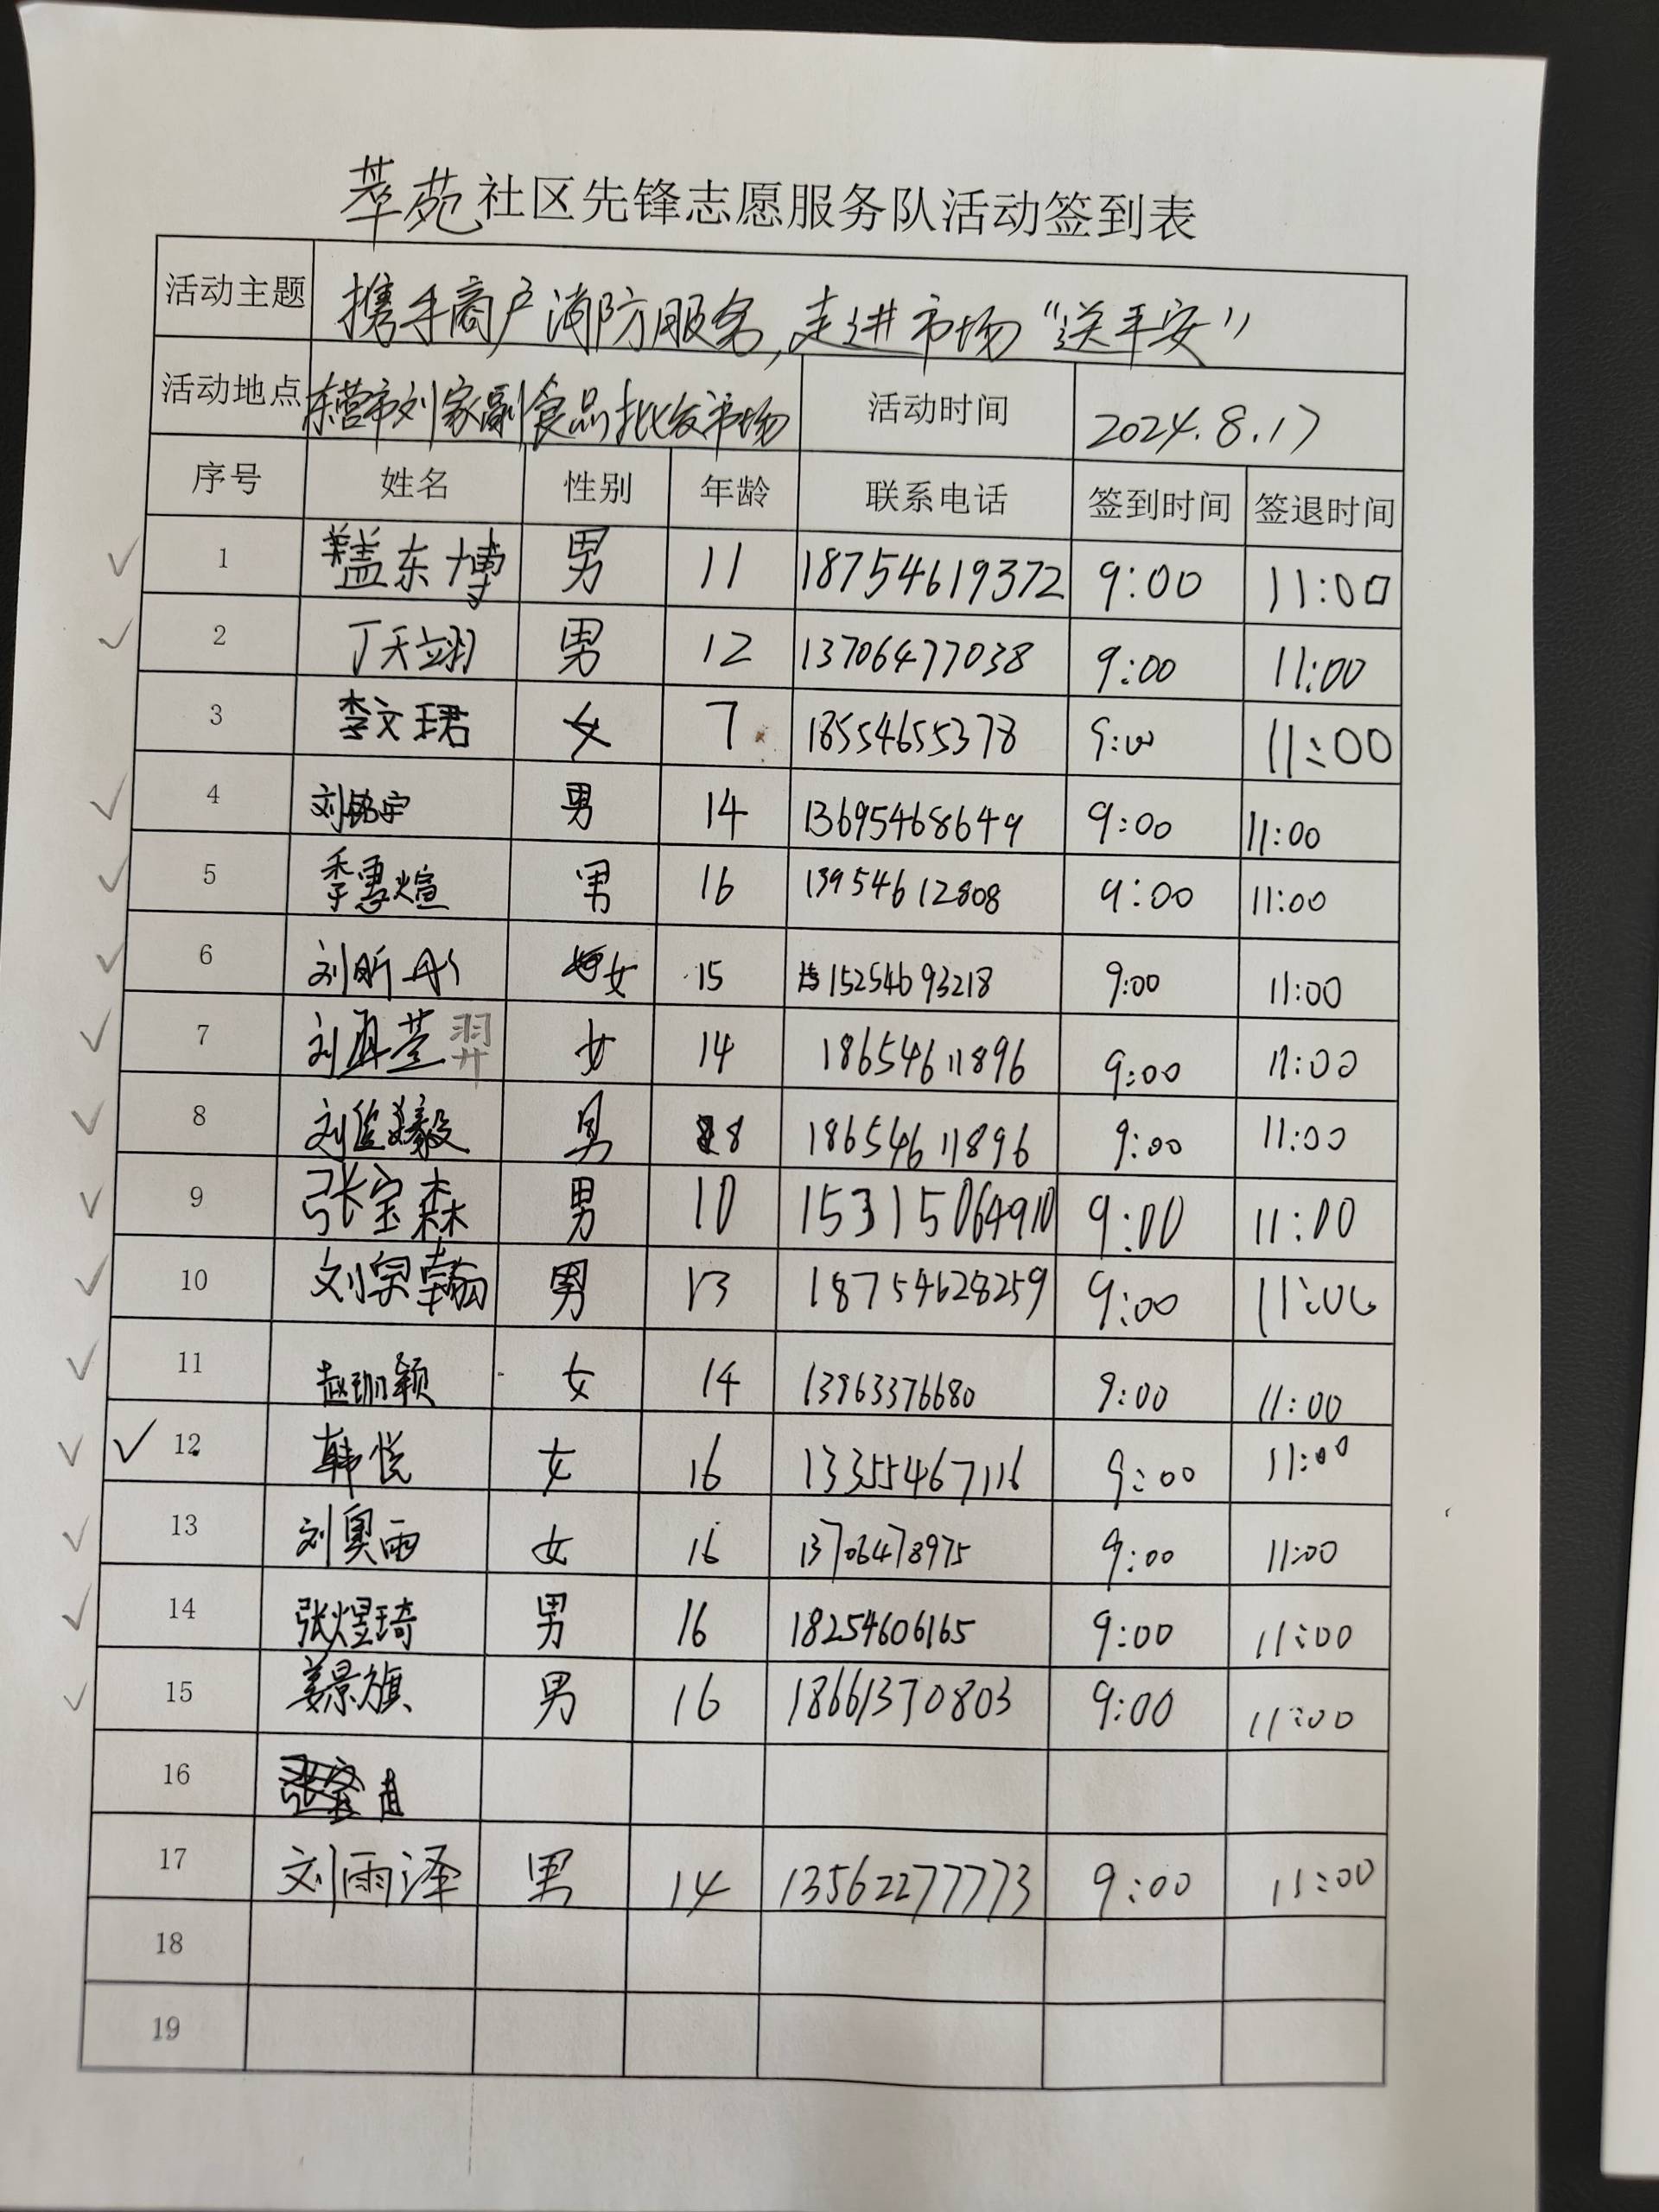 萃苑社区先锋志愿服务队活动签到表
活动主题 携手商户消防服务,走进市场“送平安”
活动地点 东营市刘家副食品批发市场 活动时间 2024.8.17
序号 姓名 性别 年龄 联系电话 签到时间 签退时间
1 盖东博 男 11 18754619372 9:00 11:00
2 丁天翊 男 12 13706477038 9:00 11:00
3 李文珺 女 7 18554655378 9:00 11:00
4 刘铭宇 男 14 13695468649 9:00 11:00
5 季惠煊 男 16 13954612808 9:00 11:00
6 刘昕 女 15 15254693218 9:00 11:00
7 刘 羿 女 14 18654611896 9:00 11:00
8 刘 毅 男 8 18654611896 9:00 11:00
9 张宝森 男 10 15315064910 9:00 11:00
10 刘宗翰 男 13 18754628259 9:00 11:00
11 赵珈颖 女 14 13963376680 9:00 11:00
12 韩悦 女 16 13355467116 9:00 11:00
13 刘奥雨 女 16 13706478975 9:00 11:00
14 张煜琦 男 16 18254606165 9:00 11:00
15 姜景旗 男 16 18661370803 9:00 11:00
16
17 刘雨泽 男 14 13562277773 9:00 11:00
18
19